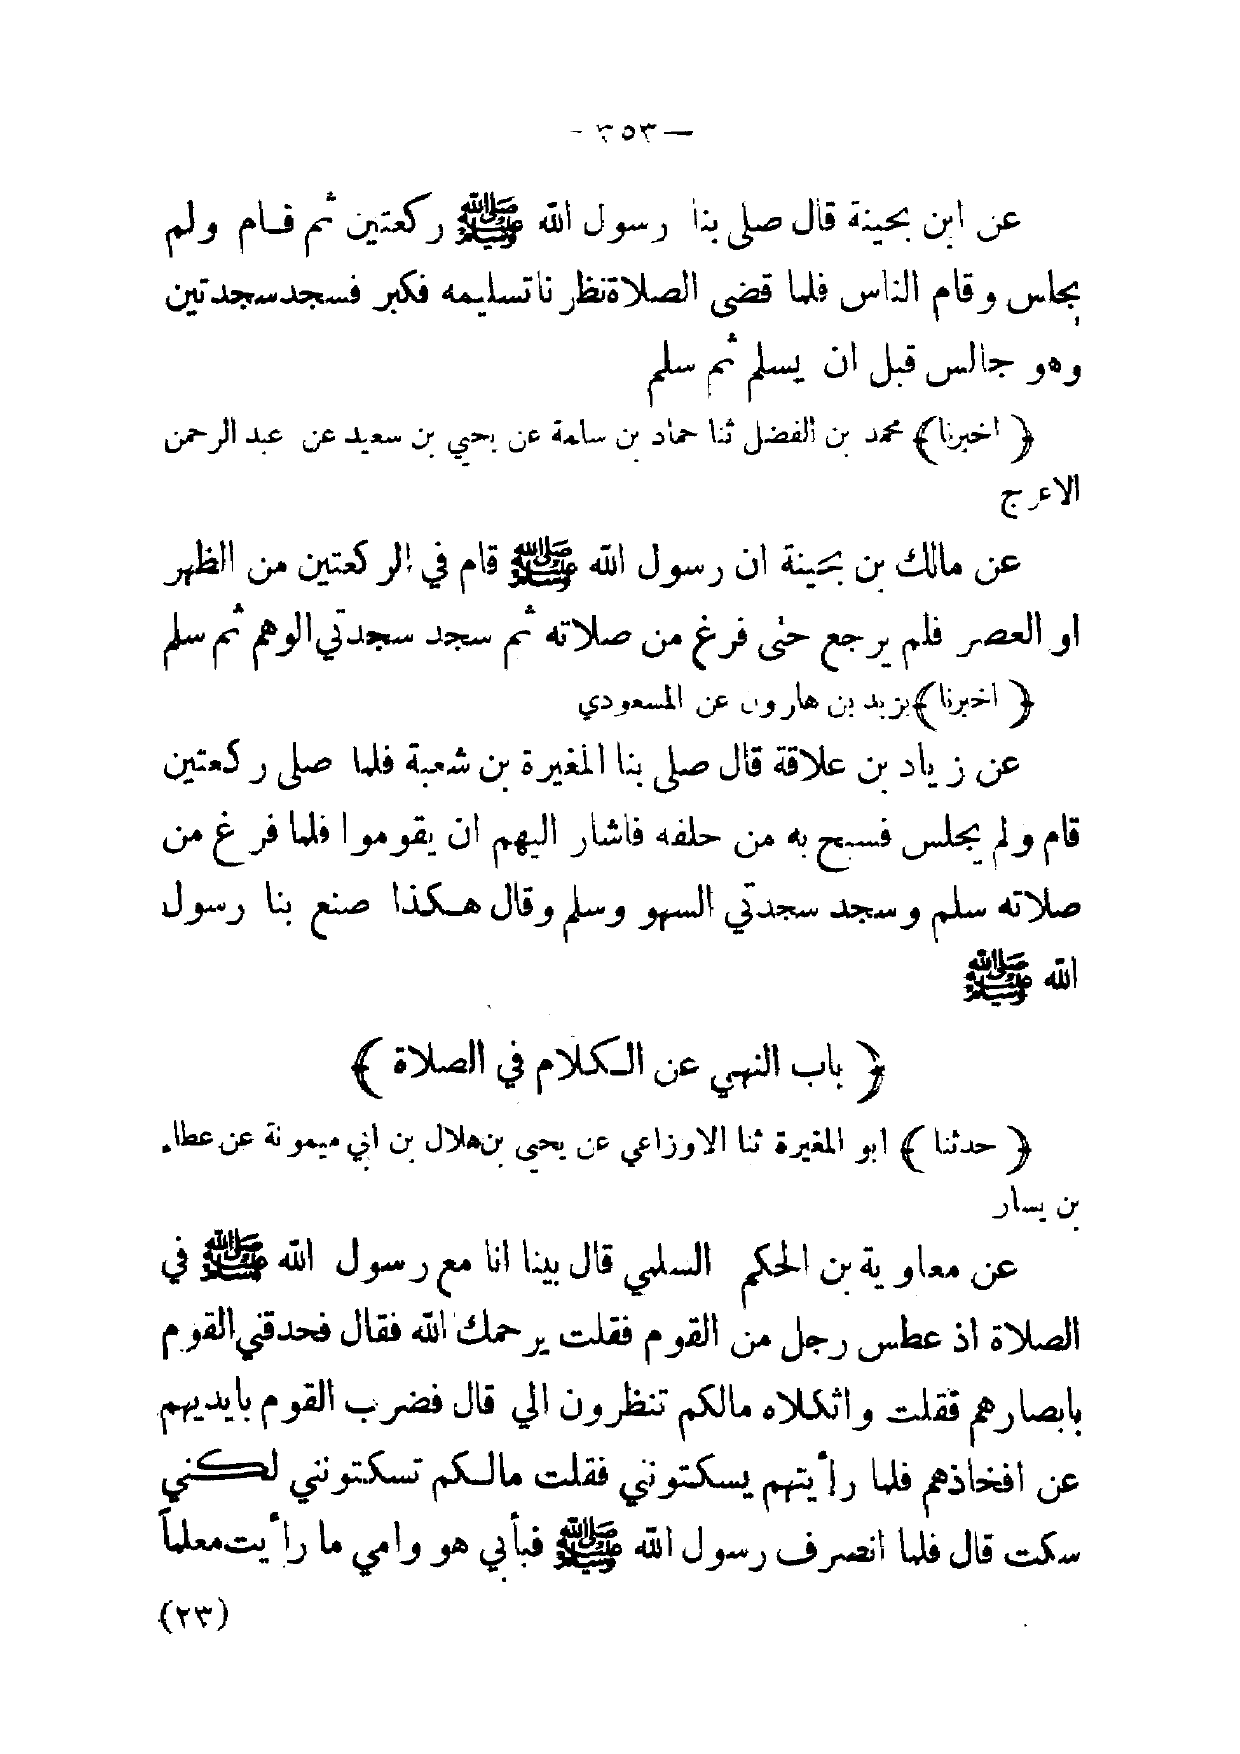 — ٣٥٣ -
عن ابن بحينة قال صلى بنا رسول الله ﷺ ركعتين ثم قام ولم
يجلس وقام الناس فلما قضى الصلاة نظرنا تسليمه فكبر فسجد سجدتين
وهو جالس قبل ان يسلم ثم سلم
﴿ اخبرنا ﴾ محمد بن الفضل ثنا حماد بن سلمة عن يحيي بن سعيد عن عبد الرحمن
الاعرج
عن مالك بن بحينة ان رسول الله ﷺ قام في الركعتين من الظهر
او العصر فلم يرجع حتى فرغ من صلاته ثم سجد سجدتي الوهم ثم سلم
﴿ اخبرنا ﴾ يزيد بن هارون عن المسعودي
عن زياد بن علاقة قال صلى بنا المغيرة بن شعبة فلما صلى ركعتين
قام ولم يجلس فسبح به من حلفه فاشار اليهم ان يقوموا فلما فرغ من
صلاته سلم وسجد سجدتي السهو وسلم وقال هكذا صنع بنا رسول
الله ﷺ
﴿ باب النهي عن الكلام في الصلاة ﴾
﴿ حدثنا ﴾ ابو المغيرة ثنا الاوزاعي عن يحيى بن هلال بن ابي ميمونة عن عطاء
بن يسار
عن معاوية بن الحكم السلمي قال بينا انا مع رسول الله ﷺ في
الصلاة اذ عطس رجل من القوم فقلت يرحمك الله فقال فحدقني القوم
بابصارهم فقلت واثكلاه مالكم تنظرون الي قال فضرب القوم بايديهم
عن افخاذهم فلما رأيتهم يسكتونني فقلت مالكم تسكتونني لكني
سكت قال فلما انصرف رسول الله ﷺ فبأبي هو وامي ما رأيت معلماً
(٢٣)